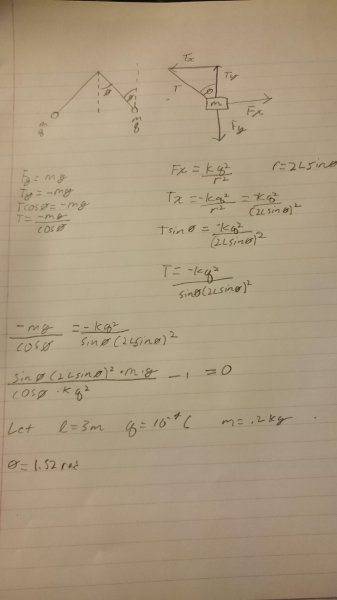 Tx
Ty
T
θ
m
Fx
Fy
θ
θ
m
q
m
q
Fy = mg
Ty = -mg
Tcosθ = -mg
T = -mg/cosθ
Fx = kq²/r²
r = 2Lsinθ
Tx = -kq²/r² = -kq²/(2Lsinθ)²
Tsinθ = -kq²/(2Lsinθ)²
T = -kq²/sinθ(2Lsinθ)²
-mg/cosθ = -kq²/sinθ(2Lsinθ)²
sinθ(2Lsinθ)²·m·g/cosθ·kq² - 1 = 0
Let l = 3m q = 10⁻⁴ C m = .2kg
θ = 1.52 rad